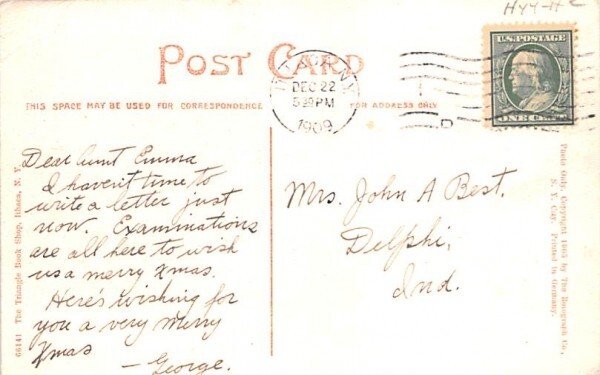 H44-HC
POST CARD
U.S. POSTAGE
ONE CENT
DEC 22
5 PM
1909
D
THIS SPACE MAY BE USED FOR CORRESPONDENCE
FOR ADDRESS ONLY
Dear Aunt Emma
I haven't time to
write a letter just
now. Examinations
are all here to wish
us a merry Xmas.
Here's wishing for
you a very merry
Xmas
— George.
Mrs. John A Best.
Delphi,
Ind.
66141 The Triangle Book Shop, Ithaca, N. Y.
Photo Only, Copyright 1905 by The Rotograph Co.,
N. Y. City. Printed in Germany.